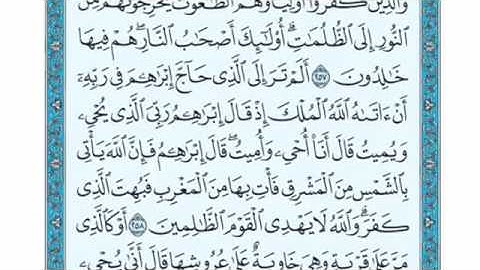 وَالَّذِينَ كَفَرُوا أَوْلِيَاؤُهُمُ الطَّاغُوتُ يُخْرِجُونَهُم مِّنَ
النُّورِ إِلَى الظُّلُمَٰتِ ۗ أُولَٰئِكَ أَصْحَٰبُ النَّارِ ۖ هُمْ فِيهَا
خَٰلِدُونَ ٢٥٧ أَلَمْ تَرَ إِلَى الَّذِي حَاجَّ إِبْرَٰهِمَ فِي رَبِّهِ
أَنْ ءَاتَىٰهُ اللَّهُ الْمُلْكَ إِذْ قَالَ إِبْرَٰهِمُ رَبِّيَ الَّذِي يُحْيِ
وَيُمِيتُ قَالَ أَنَا۠ أُحْيِ وَأُمِيتُ ۖ قَالَ إِبْرَٰهِمُ فَإِنَّ اللَّهَ يَأْتِي
بِالشَّمْسِ مِنَ الْمَشْرِقِ فَأْتِ بِهَا مِنَ الْمَغْرِبِ فَبُهِتَ الَّذِي
كَفَرَ ۗ وَاللَّهُ لَا يَهْدِي الْقَوْمَ الظَّٰلِمِينَ ٢٥٨ أَوْ كَالَّذِي
مَرَّ عَلَىٰ قَرْيَةٍ وَهِيَ خَاوِيَةٌ عَلَىٰ عُرُوشِهَا قَالَ أَنَّىٰ يُحْيِ